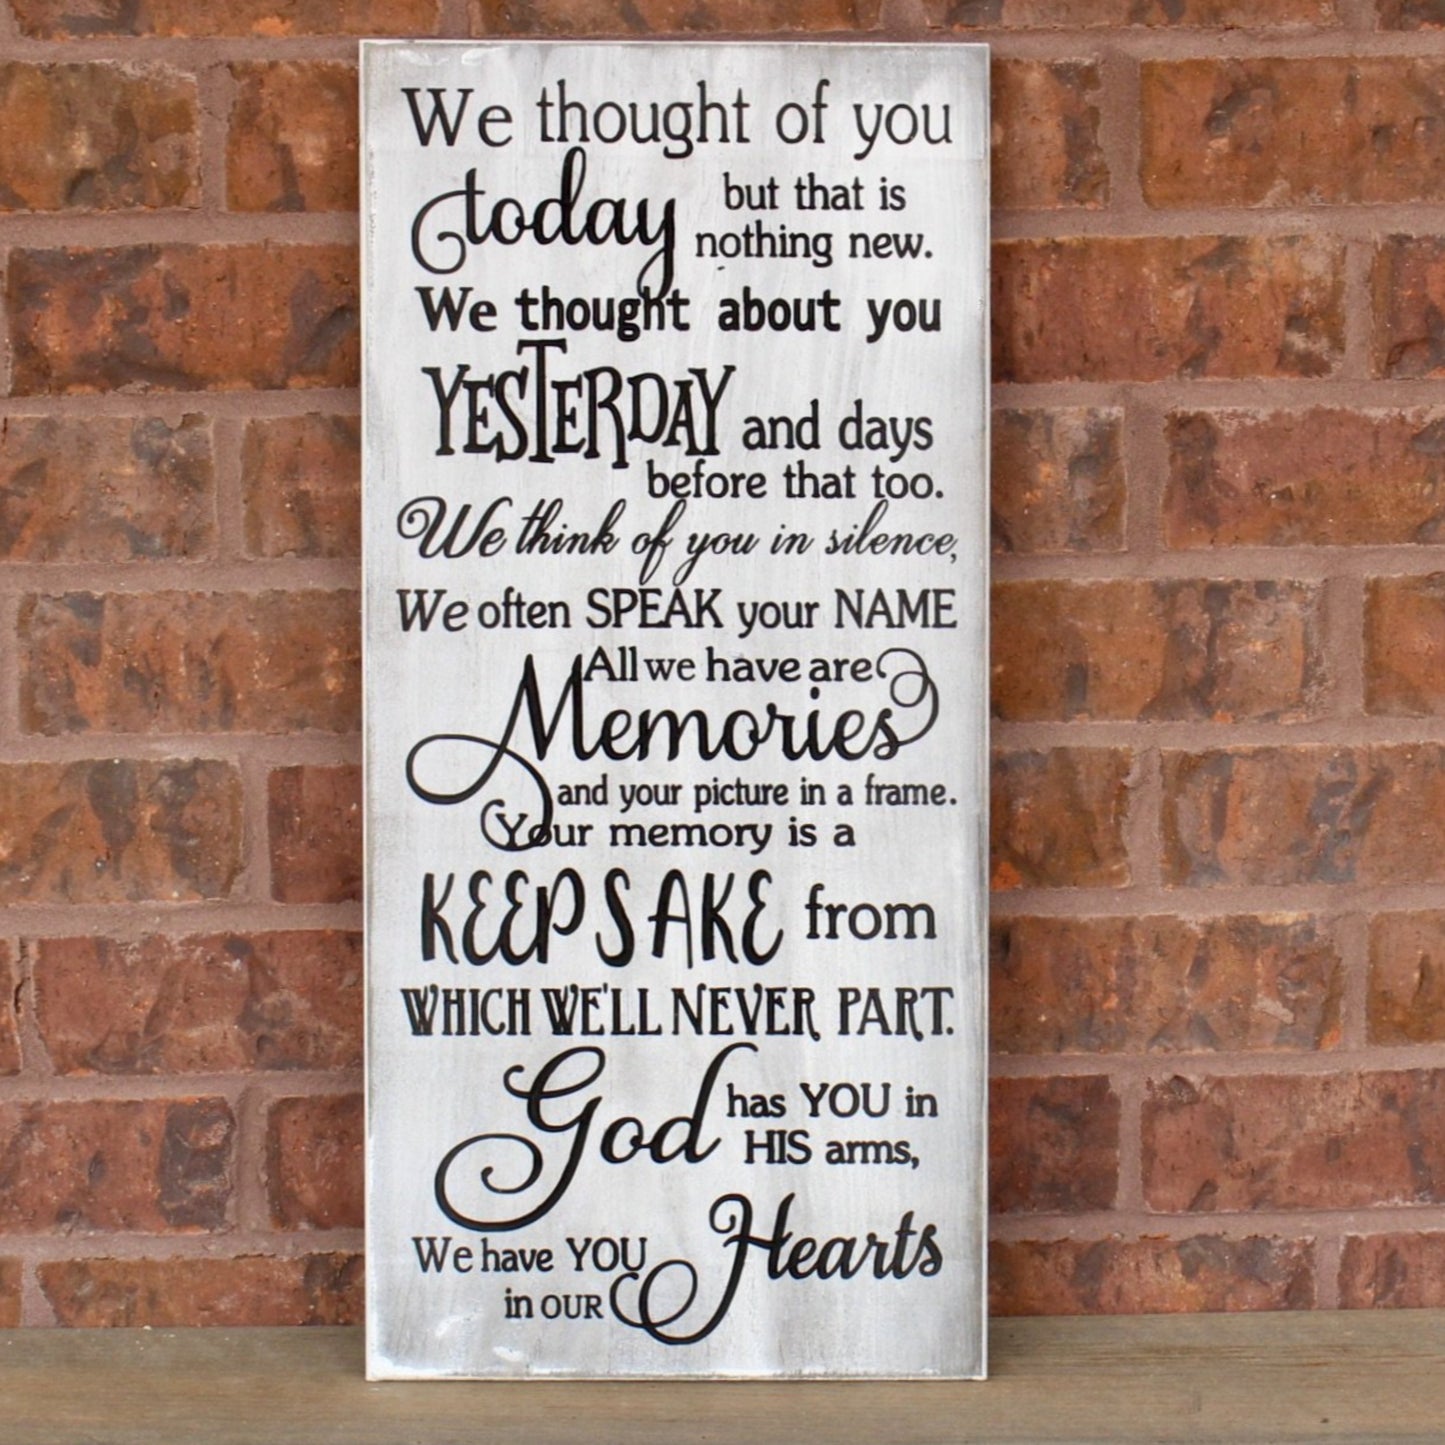 We thought of you
today but that is
nothing new.
We thought about you
YESTERDAY and days
before that too.
We think of you in silence,
We often SPEAK your NAME
All we have are
Memories
and your picture in a frame.
Your memory is a
KEEPSAKE from
WHICH WE'LL NEVER PART.
God has YOU in
HIS arms,
We have YOU
in OUR Hearts